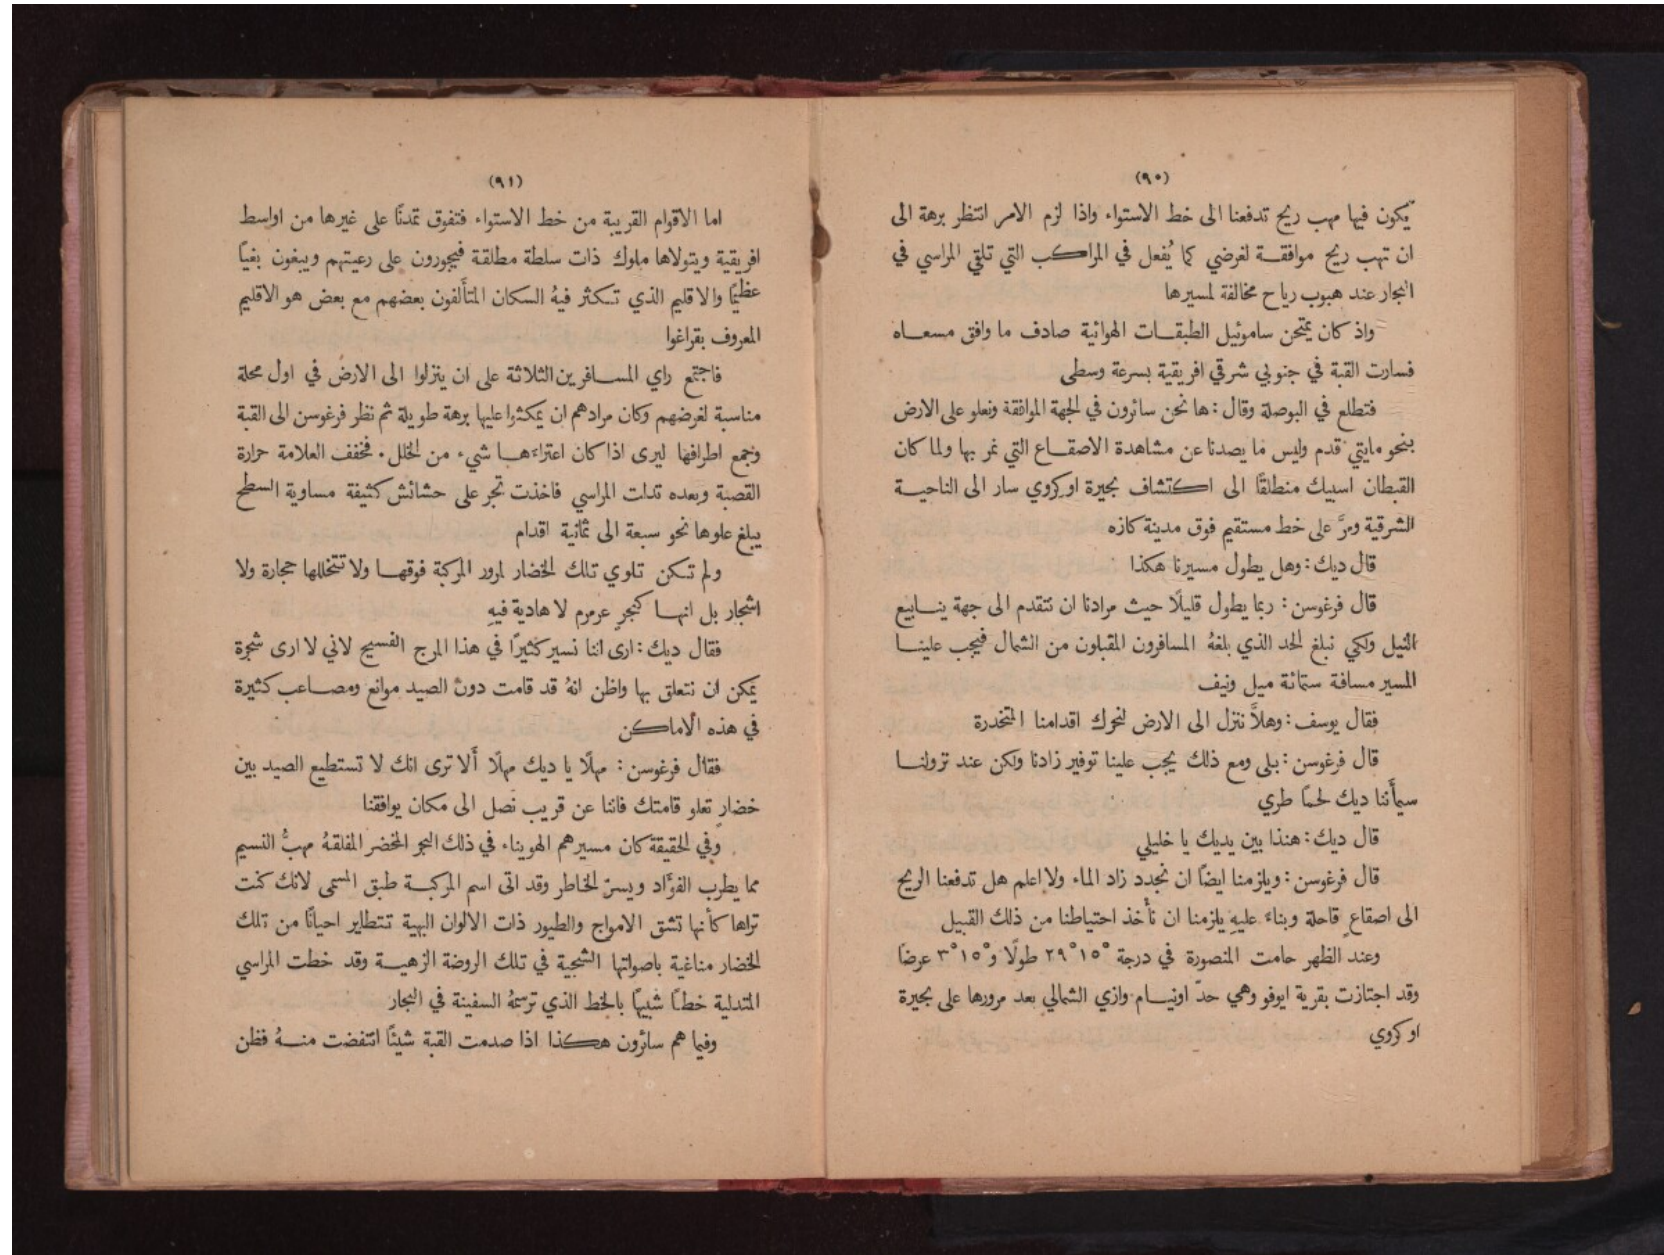 (٩٠)
يكون فيها مهب ريح تدفعنا الى خط الاستواء واذا لزم الامر انتظر برهة الى
ان تهب ريح موافقة لغرضي كما يُفعل في المراكب التي تلقي المراسي في
البحار عند هبوب رياح مخالفة لمسيرها
واذ كان يمتحن ساموئيل الطبقات الهوائية صادف ما وافق مسعاه
فسارت القبة في جنوبي شرقي افريقية بسرعة وسطى
فتطلع في البوصلة وقال : ها نحن سائرون في الجهة الموافقة ونعلو على الارض
بنحو مايتي قدم وليس ما يصدنا عن مشاهدة الاصقاع التي نمر بها ولما كان
القبطان اسبيك منطلقًا الى اكتشاف بحيرة اوكروي سار الى الناحية
الشرقية ومرَّ على خط مستقيم فوق مدينة كازه
قال ديك : وهل يطول مسيرنا هكذا
قال فرغوسن : ربما يطول قليلًا حيث مرادنا ان نتقدم الى جهة ينابيع
النيل ولكي نبلغ الحد الذي بلغهُ المسافرون المقبلون من الشمال فيجب علينا
المسير مسافة ستمائة ميل ونيف
فقال يوسف : وهلاَّ ننزل الى الارض لنحرك اقدامنا المتخدرة
قال فرغوسن : بلى ومع ذلك يجب علينا توفير زادنا ولكن عند نزولنا
سيأتنا ديك لحمًا طري
قال ديك : هنذا بين يديك يا خليلي
قال فرغوسن : ويلزمنا ايضًا ان نجدد زاد الماء ولا اعلم هل تدفعنا الريح
الى اصقاعٍ قاحلة وبناءً عليهِ يلزمنا ان نأخذ احتياطنا من ذلك القبيل
وعند الظهر حامت المنصورة في درجة °١٥ °٢٩ طولًا و °١٥ °٣ عرضًا
وقد اجتازت بقرية ايوفو وهي حدّ اونيام وازي الشمالي بعد مرورها على بحيرة
اوكروي
(٩١)
اما الاقوام القريبة من خط الاستواء فتفوق تمدنًا على غيرها من اواسط
افريقية ويتولاها ملوك ذات سلطة مطلقة فيجورون على رعيتهم ويبغون بغيًا
عظيمًا والاقليم الذي تكثر فيهُ السكان المتألفون بعضهم مع بعض هو الاقليم
المعروف بقراغوا
فاجتمع راي المسافرين الثلاثة على ان ينزلوا الى الارض في اول محلة
مناسبة لغرضهم وكان مرادهم ان يمكثوا عليها برهة طويلة ثم نظر فرغوسن الى القبة
وجمع اطرافها ليرى اذا كان اعتراءها شيء من الخلل . فخفف العلامة حرارة
القصبة وبعده تدلت المراسي فاخذت تجر على حشائش كثيفة مساوية السطح
يبلغ علوها نحو سبعة الى ثمانية اقدام
ولم تكن تلوي تلك الخضار لمرور المركبة فوقها ولا تتخللها حجارة ولا
اشجار بل انها كبحرٍ عرمرم لا هادية فيهِ
فقال ديك : ارى اننا نسير كثيرًا في هذا المرج الفسيح لاني لا ارى شجرة
يمكن ان نتعلق بها واظن انهُ قد قامت دون الصيد موانع ومصاعب كثيرة
في هذه الاماكن
فقال فرغوسن : مهلًا يا ديك مهلًا أَلا ترى انك لا تستطيع الصيد بين
خضارٍ تعلو قامتك فاننا عن قريب نصل الى مكان يوافقنا
وفي الحقيقة كان مسيرهم الهويناء في ذلك البحر المخضر المفلقهُ مهبُّ النسيم
مما يطرب الفؤاد ويسرّ الخاطر وقد اتى اسم المركبة طبق المسمى لانك كنت
تراها كأنها تشق الامواج والطيور ذات الالوان البهية تتطاير احيانًا من تلك
الخضار مناغية باصواتها الشجية في تلك الروضة الزهية وقد خطت المراسي
المتدلية خطًا شبيهًا بالخط الذي ترسمهُ السفينة في البحار
وفيما هم سائرون هكذا اذا صدمت القبة شيئًا انتفضت منهُ فظن